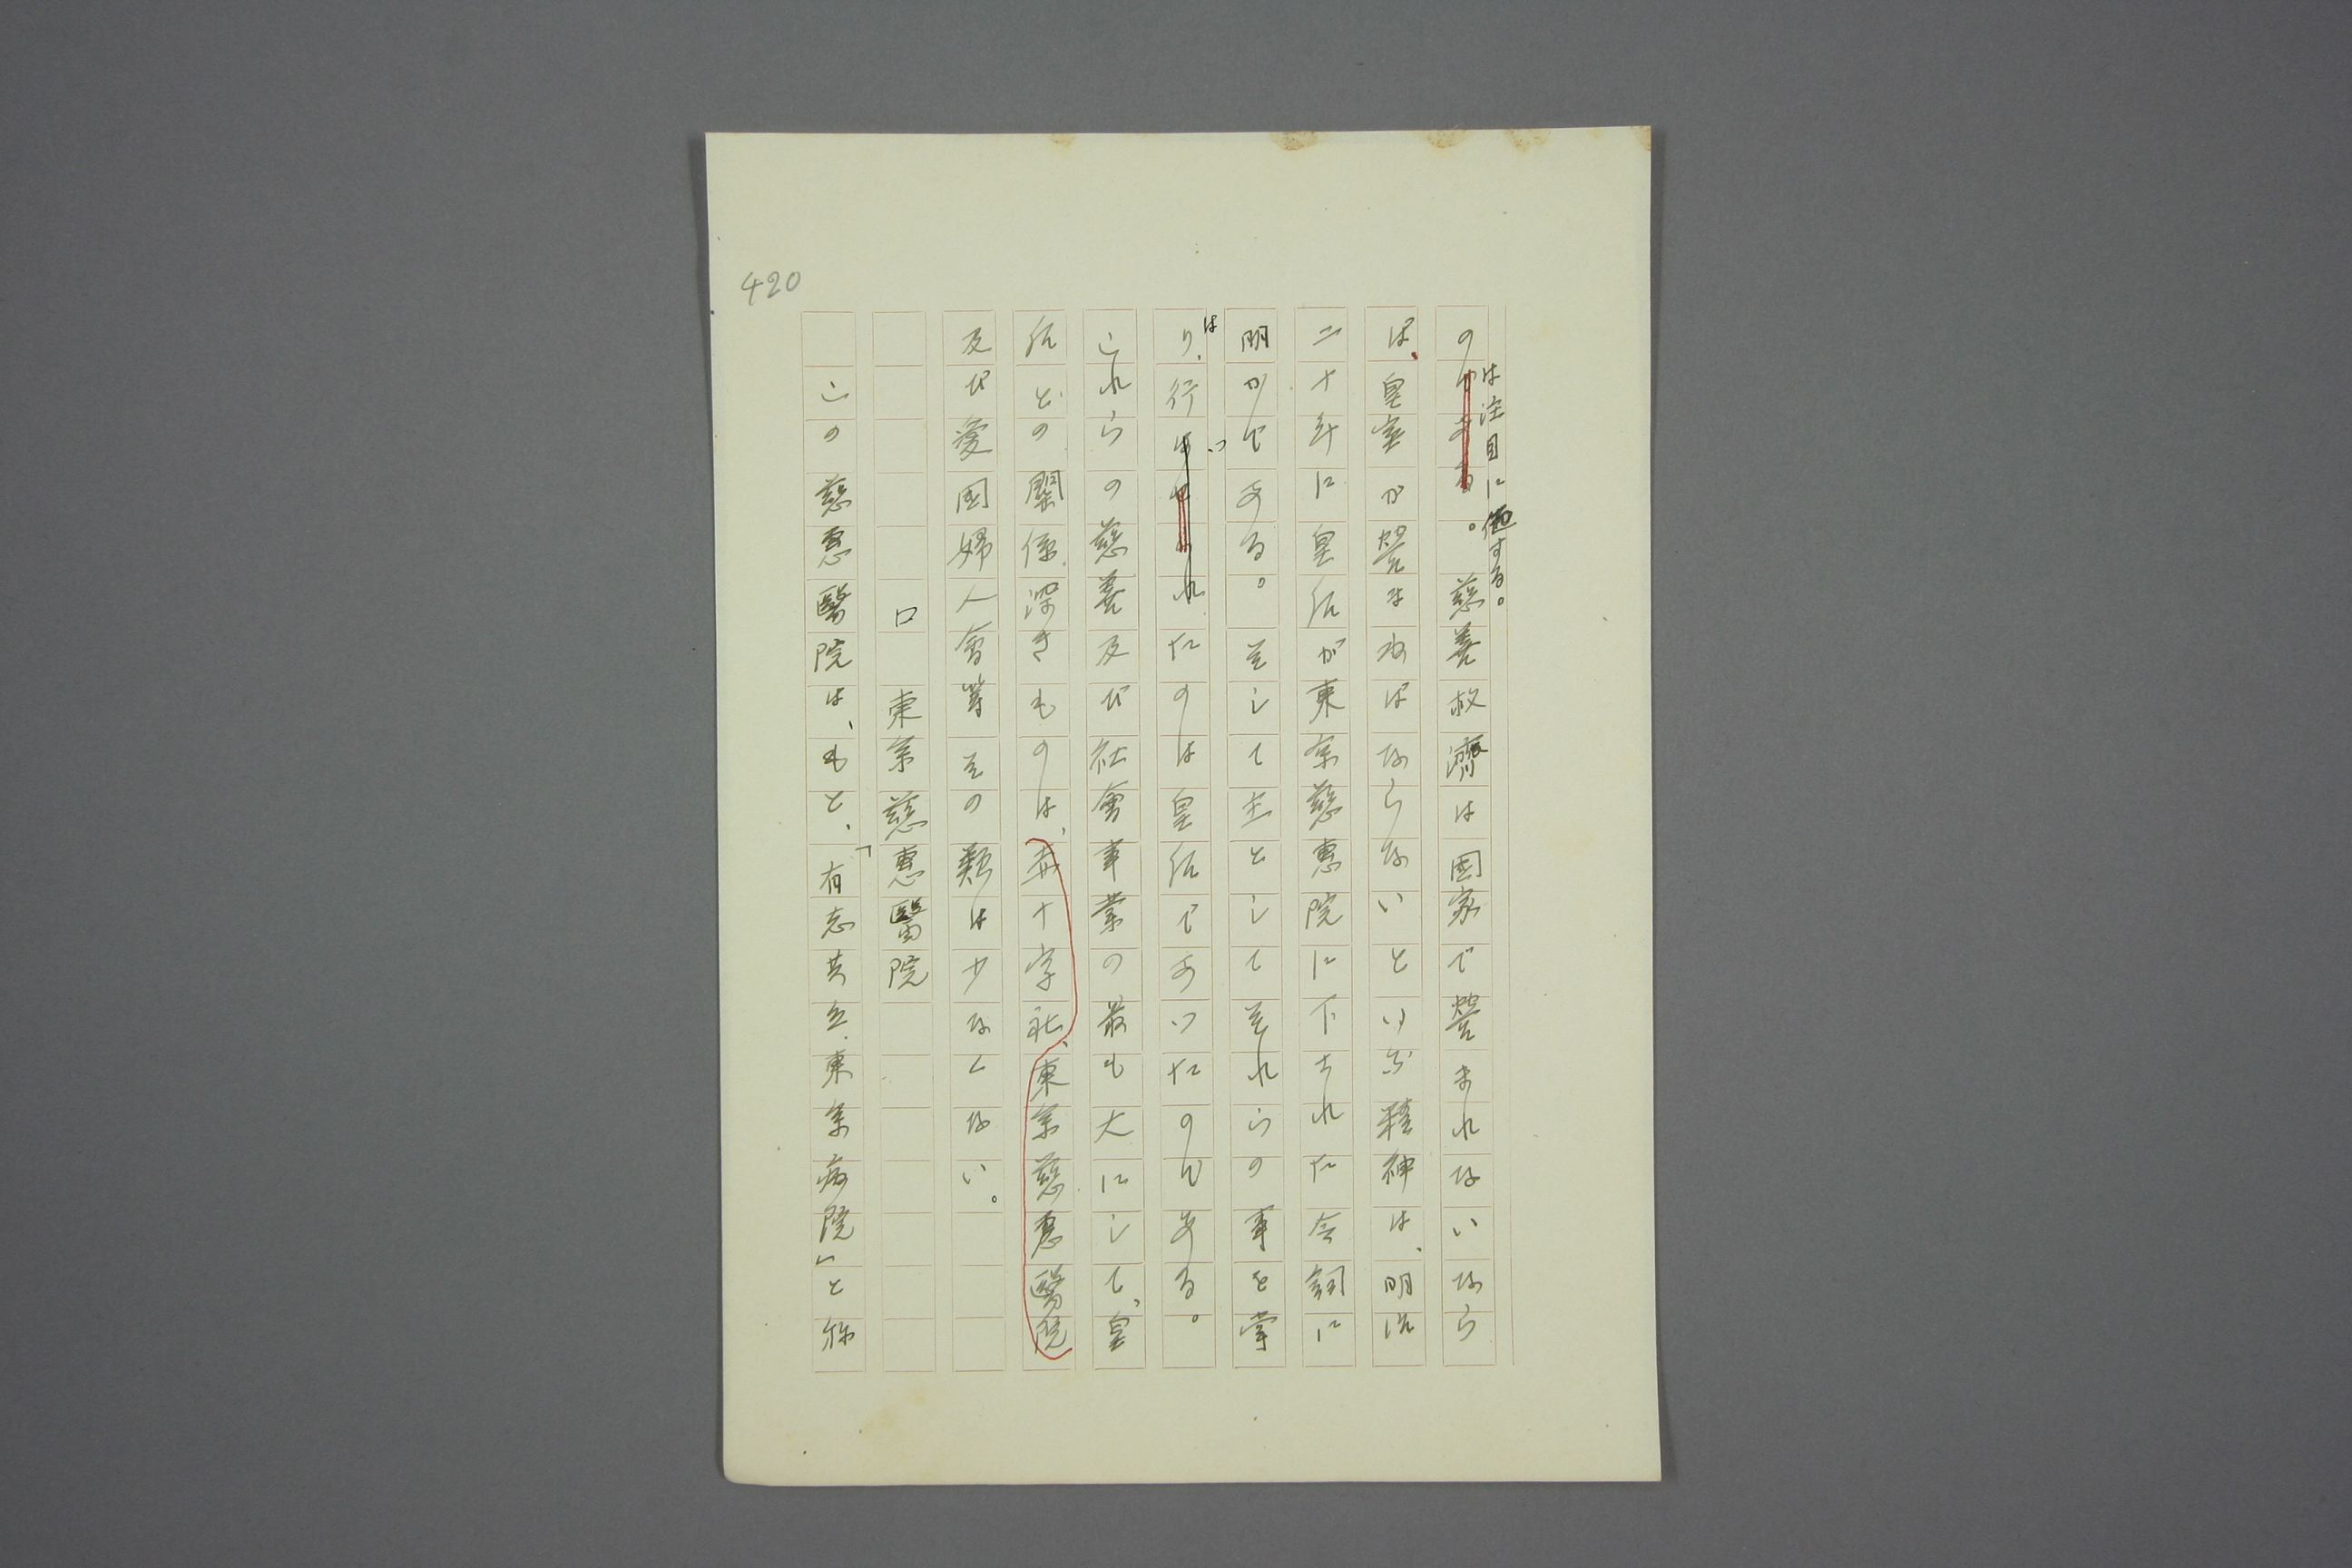 420
は注目に値する。
の。慈善救濟は国家で營まれないなら
ば、皇室が營まねばならないという精神は、明治
二十年に皇后が東京慈惠院に下された令詞に
明かである。そして主としてそれらの事を掌
り、行はつたのは皇后であつたのである。
これらの慈善及び社會事業の最も大にして、皇
后との關係深きものは、赤十字社、東京慈惠醫院
及び愛国婦人會等その類は少なくない。
口 東京慈惠醫院
この慈惠醫院は、もと、「有志共立東京病院」と称